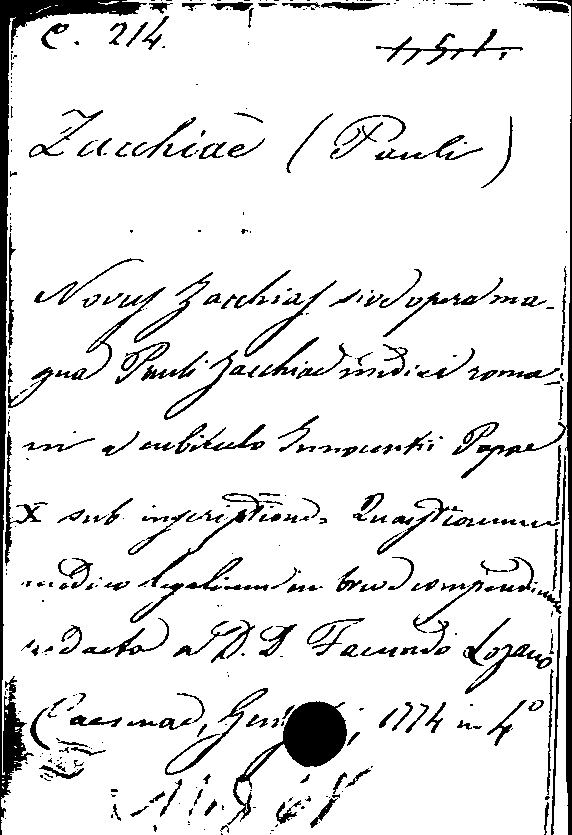 C. 214.
1,5,1.
Zacchiae (Pauli)
Novus Zacchias sive opera ma-
gna Pauli Zacchiae medici roma-
ni a cubiculo Innocentii Papae
X sub inscriptione Quaestionum
medico legalium in breve compendium
redacta a D. D. Facundo Lozano
Caesenae, 1774 in 4º